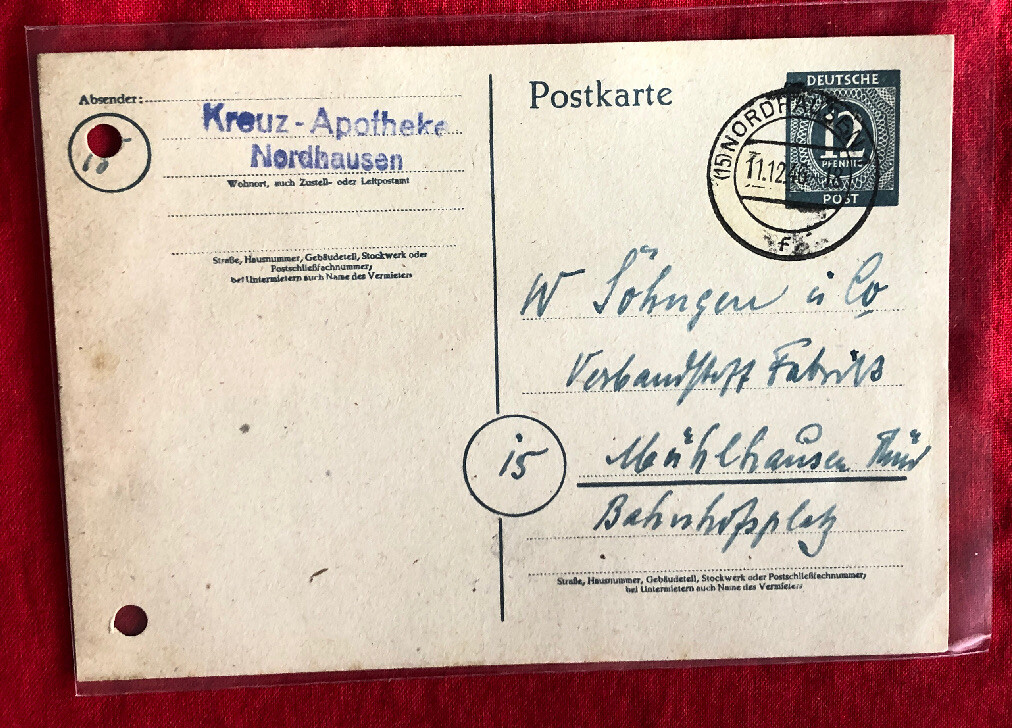 Absender:
15
Kreuz-Apotheke
Nordhausen
Wohnort, auch Zustell- oder Leitpostamt
Straße, Hausnummer, Gebäudeteil, Stockwerk oder
Postschließfachnummer,
bei Untermietern auch Name des Vermieters
Postkarte
DEUTSCHE
12
PFENNIG
POST
(15) NORDHAUSEN
11.12.46
F
W Söhngen u Co
Verbandstoff Fabrik
15
Mühlhausen Thür
Bahnhofsplatz
Straße, Hausnummer, Gebäudeteil, Stockwerk oder Postschließfachnummer;
bei Untermietern auch Name des Vermieters